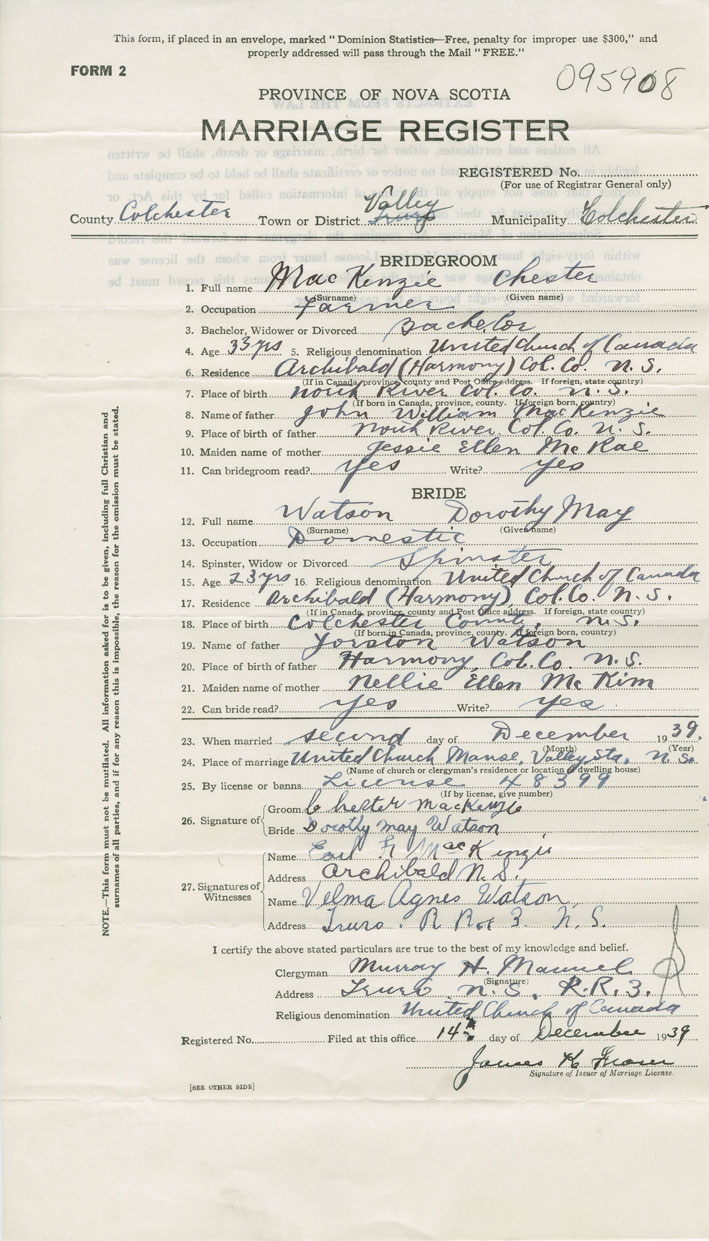 This form, if placed in an envelope, marked "Dominion Statistics—Free, penalty for improper use $300," and
properly addressed will pass through the Mail "FREE."
FORM 2
095908
PROVINCE OF NOVA SCOTIA
MARRIAGE REGISTER
REGISTERED No.
(For use of Registrar General only)
County Colchester Town or District Valley Truro Municipality Colchester
BRIDEGROOM
1. Full name MacKenzie Chester
(Surname) (Given name)
2. Occupation Farmer
3. Bachelor, Widower or Divorced Bachelor
4. Age 33 yrs 5. Religious denomination United Church of Canada
6. Residence Archibald (Harmony) Col. Co. N. S.
(If in Canada, province, county and Post Office address. If foreign, state country)
7. Place of birth North River Col. Co. N. S.
(If born in Canada, province, county. If foreign born, country)
8. Name of father John William MacKenzie
9. Place of birth of father North River, Col. Co. N. S.
10. Maiden name of mother Jessie Ellen McRae
11. Can bridegroom read? Yes Write? Yes
BRIDE
12. Full name Watson Dorothy May
(Surname) (Given name)
13. Occupation Domestic
14. Spinster, Widow or Divorced Spinster
15. Age 23 yrs 16. Religious denomination United Church of Canada
17. Residence Archibald (Harmony) Col. Co. N. S.
(If in Canada, province, county and Post Office address. If foreign, state country)
18. Place of birth Colchester County, N. S.
(If born in Canada, province, county. If foreign born, country)
19. Name of father Yorston Watson
20. Place of birth of father Harmony, Col. Co. N. S.
21. Maiden name of mother Nellie Ellen McKim
22. Can bride read? Yes Write? Yes
23. When married second day of December 1939.
(Month) (Year)
24. Place of marriage United Church Manse, Valley Sta. N. S.
(Name of church or clergyman's residence or location of dwelling house)
25. By license or banns License 48399
(If by license, give number)
26. Signature of
Groom Chester MacKenzie
Bride Dorothy May Watson
27. Signatures of Witnesses
Name Earl MacKenzie
Address Archibald N. S.
Name Velma Agnes Watson
Address Truro. R R 3 N. S.
I certify the above stated particulars are true to the best of my knowledge and belief.
Clergyman Murray H.
(Signature)
Address Truro N. S. R. R. 3.
Religious denomination United Church of Canada
Registered No. Filed at this office 14th day of December 1939
James K Fraser
Signature of Issuer of Marriage License.
[SEE OTHER SIDE]
NOTE.—This form must not be mutilated. All information asked for is to be given, including full Christian and
surnames of all parties, and if for any reason this is impossible, the reason for the omission must be stated.